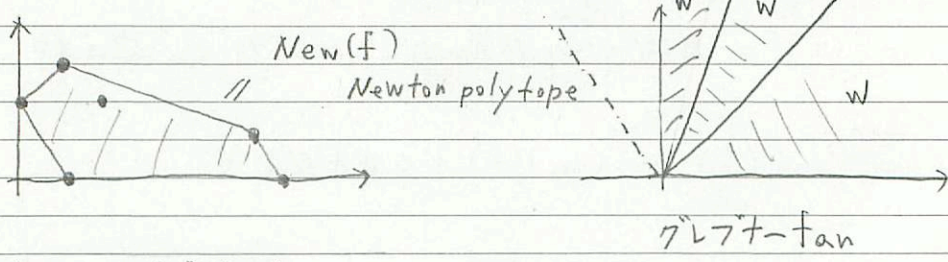 New(f)
//
Newton polytope
w w
w
グレブナーfan